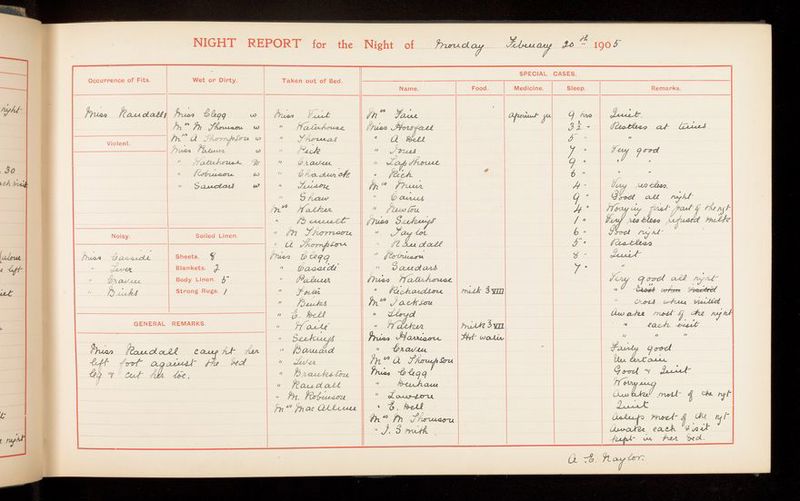 NIGHT REPORT for the Night of Monday February 20th 1905
Occurrence of Fits.
Miss Randall
Violent.
Noisy.
Miss Cassidi
" Liver
" Craven
" Binks
Wet or Dirty.
Miss Clegg w
Mrs M Thomson w
Mrs A Thompson w
Miss Palmer w
" Waterhouse
" Robinson w
" Sandars w
Soiled Linen.
Sheets. 8
Blankets. 2
Body Linen 5
Strong Rugs. 1
GENERAL REMARKS.
Miss Randall caught her
left foot against the bed
leg & cut her toe.
Taken out of Bed.
Miss
" Waterhouse
" Thomas
" Peck
" Craven
" Chadwick
" Jinson
" Shaw
Mrs Walker
" Bennett
" M Thomson
" A Thompson
Miss Clegg
" Cassidi
" Palmer
"
" Binks
" E. Bell
" Waite
" Seekings
" Barnard
" Liver
" Brankston
" Randall
" M. Robinson
Mrs
SPECIAL CASES.
Name. Food. Medicine. Sleep. Remarks.
Mrs 9 hrs Quiet.
Miss Horsfall 3½ " Restless at times
" A Bell 5 " "
" Jones 7 " Very good
" 9 " "
" Rich 6 " "
Mrs Muir 4 " Very restless.
" Caines 9 " Good all night
" Newton 4 " Worrying first part of the ngt
Miss Seekings 1 " Very restless refused milk
" Taylor 6 " Good night
" Randall 5 " Restless
" Robinson 8 " Quiet
" Sandars 7 "
Miss Waterhouse Very good all night
" Richardson milk ℥VIII " Quiet when visited
Mrs Jackson " cross when visited
" Lloyd Awake most of the night
" Walker milk ℥VII " each visit
Miss Harrison Hot water " "
" Craven Fairly good
Mrs A Thompson Uncertain
Miss Clegg Good & Quiet
" Denham Worrying
" Lawson Awake most of the ngt
" E. Bell Quiet
Mrs M Thomson Asleep most of the ngt
" J. Smith Awake each visit
kept in her bed.
A. E. Naylor.